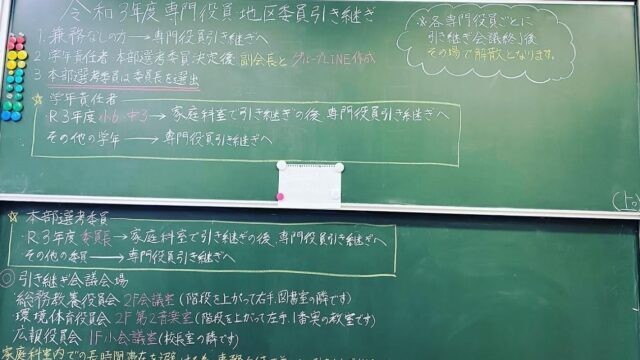 令和3年度 専門役員 地区委員引き継ぎ
1. 兼務なしの方→専門役員引き継ぎへ
2. 学年責任者 本部選考委員決定後 副会長と グループLINE作成
3 本部選考委員は委員長を選出
※各専門役員ごとに
引き継ぎ会議終了後
その場で解散となります。
☆学年責任者
・R3年度小6・中3→家庭科室で引き継ぎの後、専門役員引き継ぎへ
その他の学年→専門役員引き継ぎへ
☆本部選考委員
・R3年度委員長→家庭科室で引き継ぎの後、専門役員引き継ぎへ
その他の委員→専門役員引き継ぎへ
◎引き継ぎ会議会場
・総務教養役員会 2F会議室(階段を上がって右手、図書室の隣です)
・環境体育役員会 2F第2音楽室(階段を上がって左手、1番奥の教室です)
・広報役員会 1F小会議室(校長室の隣です)
家庭科室内での長時間